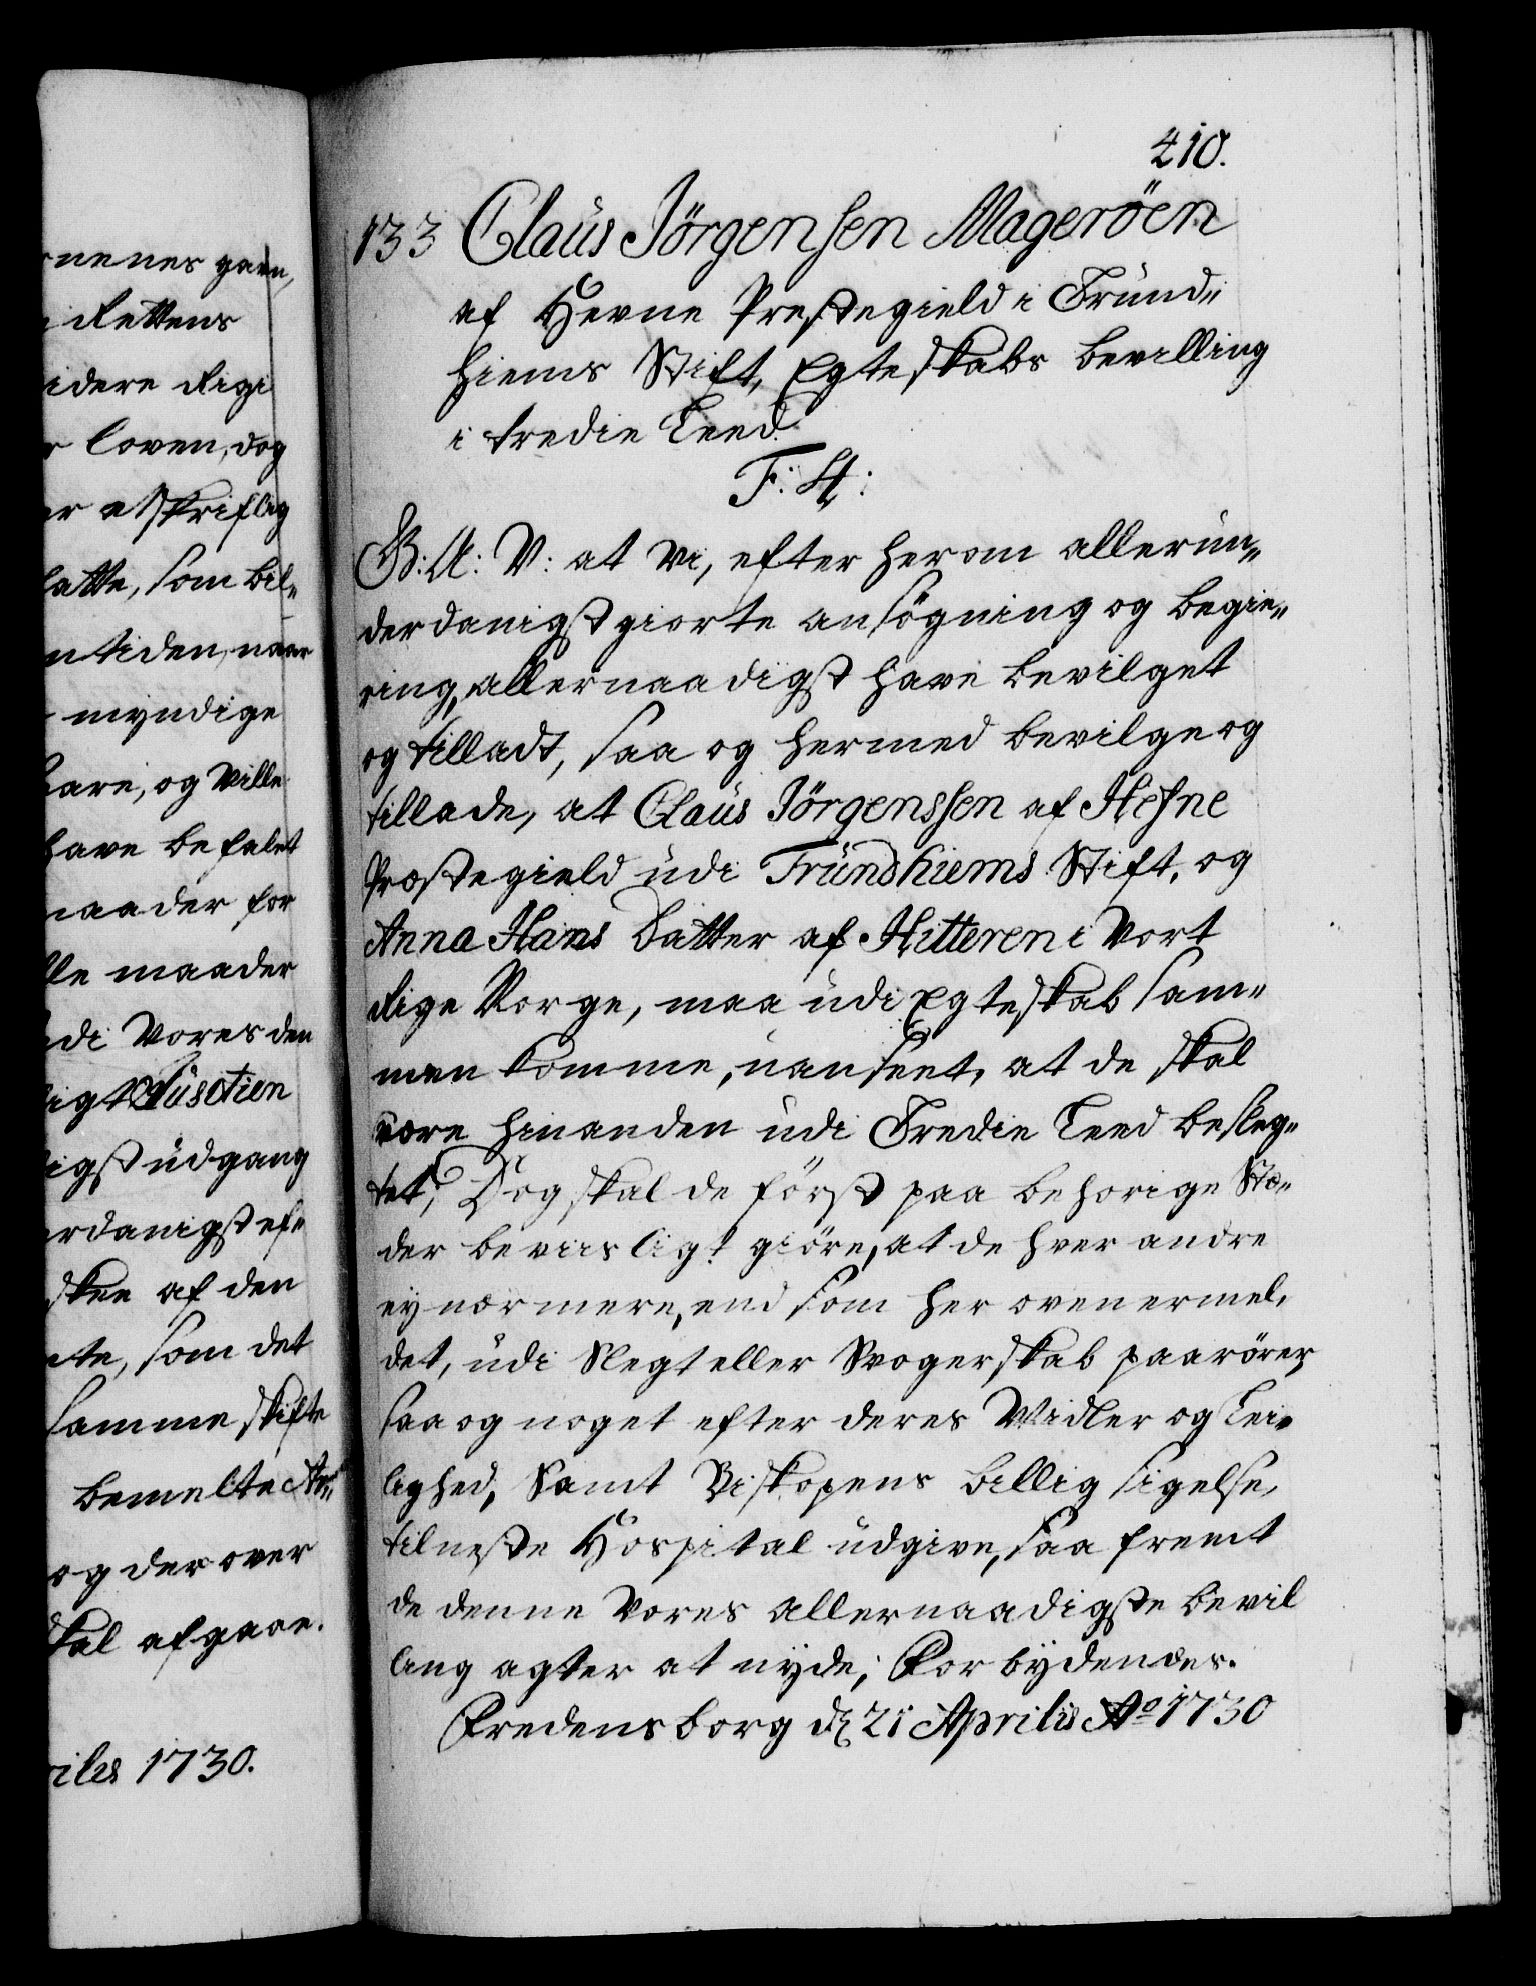 rnenes gaen,
Rettens
idere Rigi
r loven, dog
er et skriftlig
latte, som bil„
ntiden, naar
myndige
have, og Ville
have befalet
maader for
lle maader
di Vores den
igst Auction
igst udgang
erdanigst ef„
skee af den
te, som det
samme skifte
bemelte Ar„
og derover
skal afgaae.
rilis 1730.
410.
133 Claus Jörgensen Mageröen
af Hevne Prestegield i Trund„
hiems Stift, Egteskabs bevilling
i tredie Leed.
F: 4:
G: A: V: at Vi, efter herom allerun„
derdanigst giorte ansögning og begie„
ring, allernaadigst have bevilget
og tilladt, saa og hermed bevilge og
tillade, at Claus Jörgenssen af Hefne
Præstegield udi Trundhiems Stift, og
Anna Hans Datter af Hitteren i Vort
Rige Norge, maa udi Egteskab sam„
men komme, uanseet, at de skal
være hinanden udi Tredie Leed besleg„
tet; Dog skal de först paa behorige Stæ„
der beviisligt giöre, at de hver andre
ey nærmere, end som her ovenermel„
det, udi Slegt eller Svogerskab paarörer,
saa og noget efter deres Midler og Lei„
lighed, Samt Biskopens billig sigelse,
til neste Hospital udgive, saa fremt
de denne Vores allernaadigste bevil
ling agter at nyde; Forbydendes.
Fredensborg dʒ 21 Aprilis Ao 1730